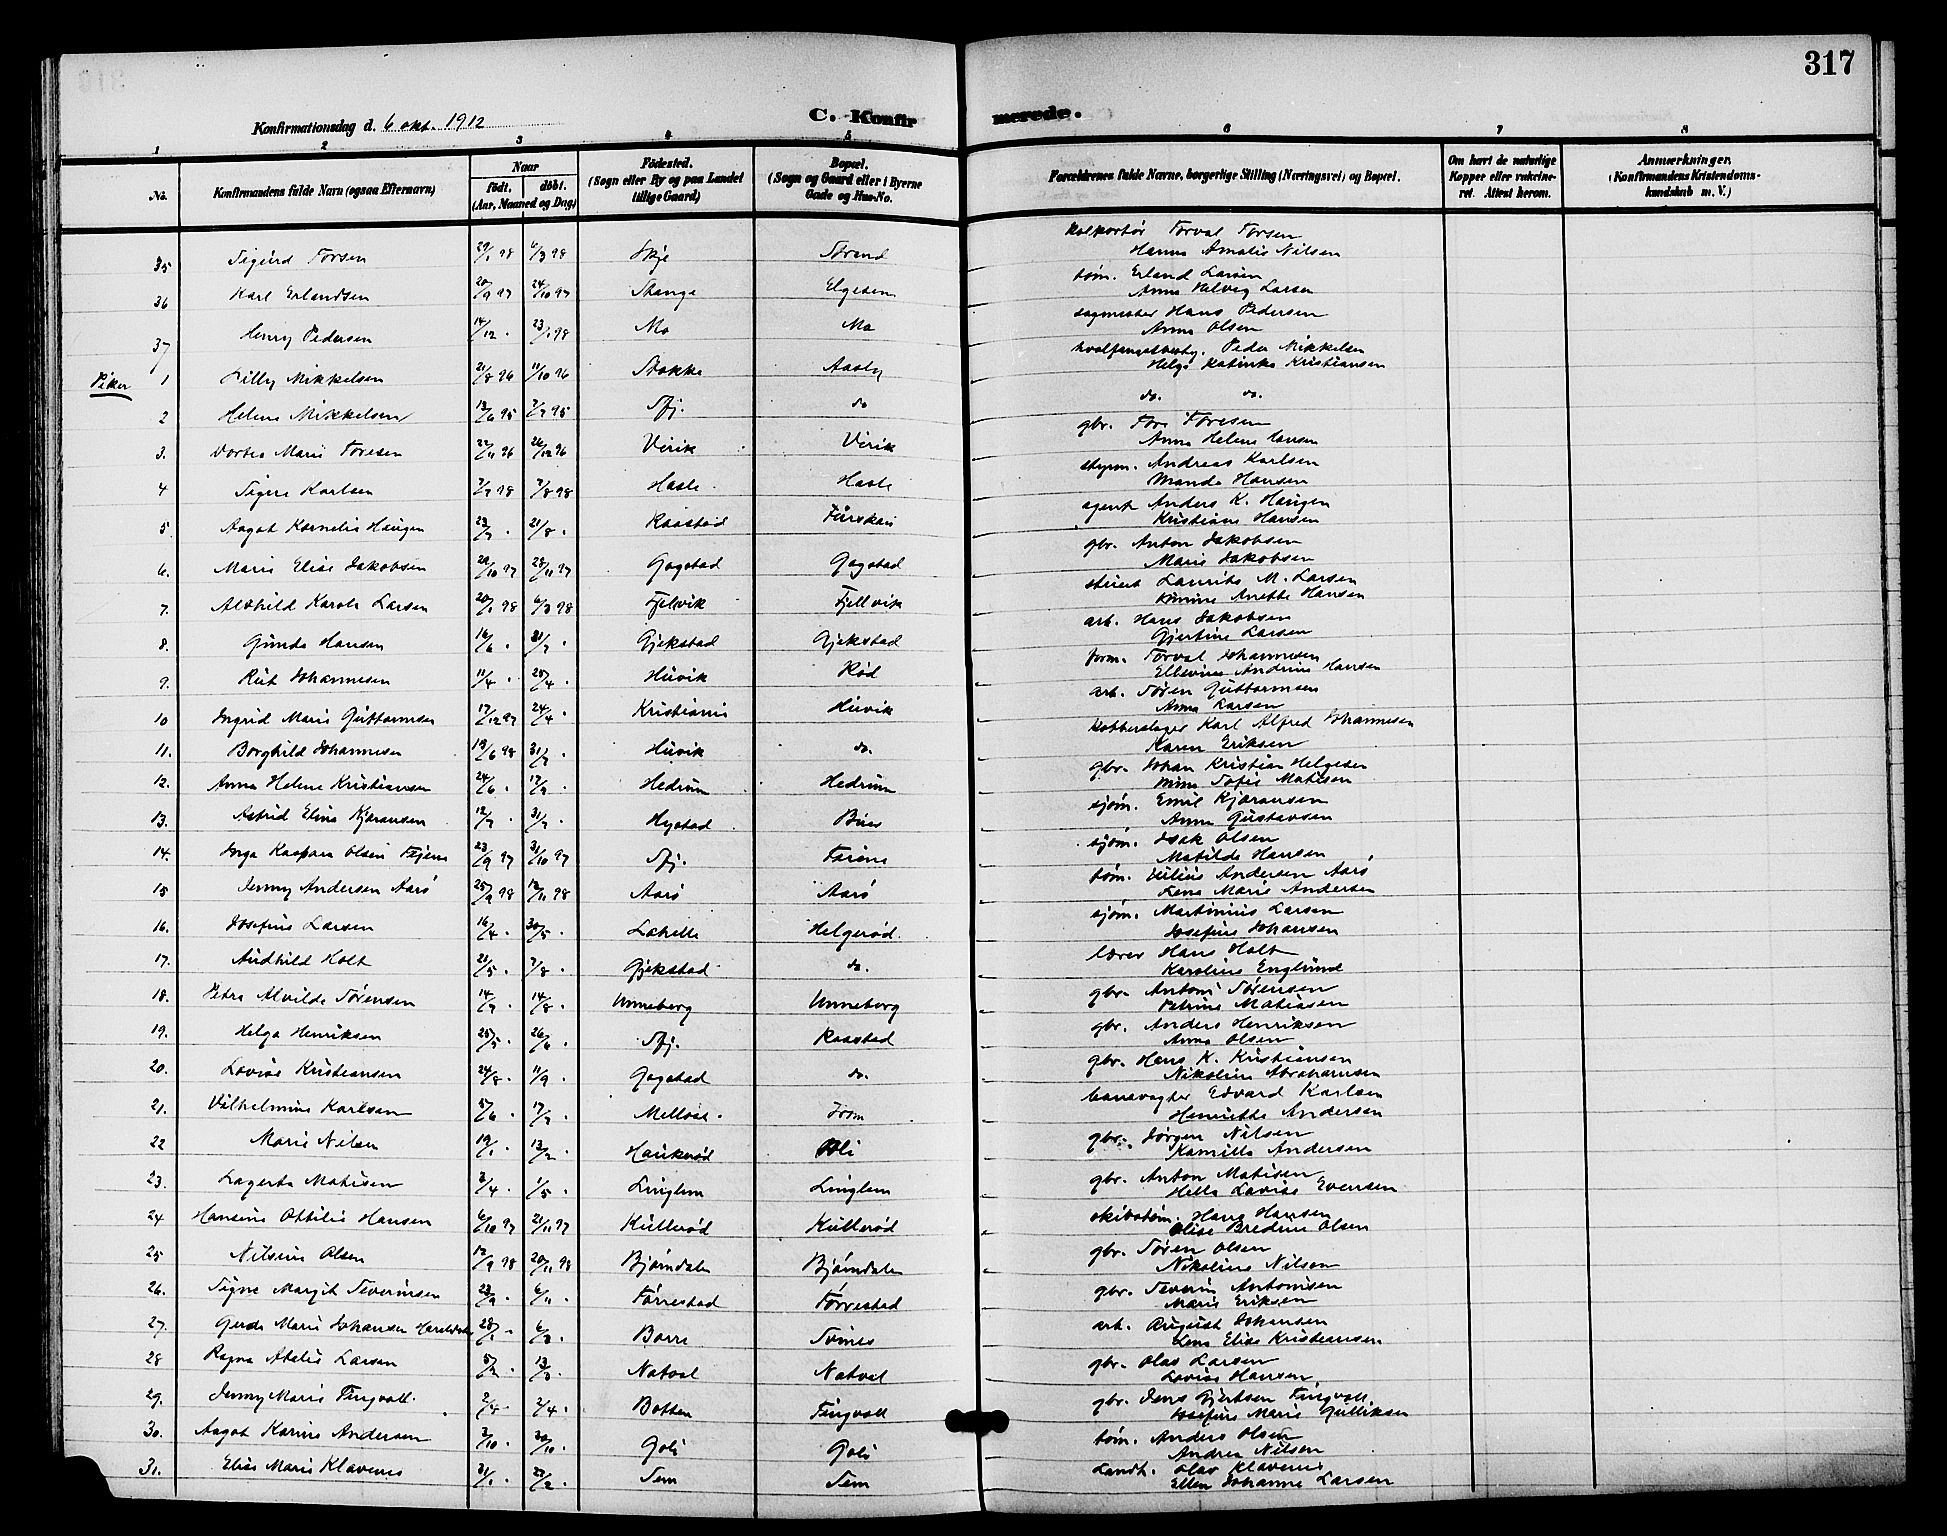 317
Konfirmationsdag d. 6 okt. 1912
C. Konfirmerede.
1 2 3 4 5 6 7 8
No.
Konfirmandens fulde Navn (ogsaa Efternavn)
Naar
født. døbt.
(Aar, Maaned og Dag)
Fødested.
(Sogn eller By og paa Landet tillige Gaard)
Bopæl.
(Sogn og Gaard eller i Byerne Gade og Hus-No.
Forældrenes fulde Navne, borgerlige Stilling (Næringsvei) og Bopæl.
Om havt de naturlige Kopper eller vakcineret. Attest herom.
Anmærkninger.
(Konfirmandens Kristendomskundskab m. V.)
35 Sigurd Torsen 29/1 98 6/3 98 Skje Strand kolportør Torval Torsen
Hanna Amalie Nilsen
36 Karl Erlandsen 20/9 97 24/10 97 Stange Elgesem tøm. Erland Larsen
Anna Helvig Larsen
37 Henry Pedersen 14/12 . 23/1 98 Mo Mo sagmester Hans Pedersen
Anna Olsen
Piker 1 Lilly Mikkelsen 21/8 96 11/10 96 Stokke Aasly hvalfangstbesty. Peder Mikkelsen
Helga Katinka Kristiansen
2 Helene Mikkelsen 13/6 95 7/7 95 Sfj. do do. do.
3. Dortea Marie Toresen 22/11 96 26/12 96 Virik Virik gbr. Tore Toresen
Anna Helene Hansen
4 Signe Karlsen 7/7 98 7/8 98 Hasle Hasle styrm. Andreas Karlsen
Wanda Hansen
5. Aagot Kornelia Haugen 23/7 . 21/8 . Raastad Furskau agent Anders K. Haugen
Kristiane Hansen
6. Marie Elise Jakobsen 20/10 97 28/11 97 Gogstad Gogstad gbr. Anton Jakobsen
Marie Jakobsen
7. Alvhild Karole Larsen 20/1 98 6/3 98 Fjelvik Fjellvik stuert Laurits M. Larsen
Anette Hansen
8. Gunda Hansen 16/6 . 31/7 . Gjekstad Gjekstad arb. Hans Jakobsen
Gjertine Larsen
9. Rut Johannesen 11/4 . 25/4 . Huvik Rød form. Torval Johannesen
Ellevine Andrine Hansen
10 Ingrid Marie Guttormsen 17/12 97 24/4 . Kristiania Huvik arb. Søren Guttormsen
Anna Larsen
11. Borghild Johannesen 19/6 98 31/7 . Huvik do. Kobberslager Karl Alfred Johannesen
Karen Eriksen
12. Anna Helene Kristiansen 24/6 . 17/7 . Hedrum Hedrum gbr. Johan Kristian Helgesen
Sofie Matisen
13. Astrid Elina Kjæransen 12/7 . 31/7 . Hystad sjøm. Emil Kjæransen
Anna Gustavsen
14. Inga Kaspara Olsen 23/9 97 31/10 97 Sfj. sjøm. Isak Olsen
Matilde Hansen
15 Jenny Andersen Aarø 25/9 98 12/11 98 Aarø Aarø tøm. Julius Andersen Aarø
Lena Marie Andersen
16. Josefine Larsen 16/4 . 30/5 . Helgerød sjøm. Martinius Larsen
Josefine Johansen
17. Audhild Holt 21/5 . 7/8 . Gjekstad do. lærer Hans Holt
Karoline Englund
18. Petra Alvilde Sørensen 14/7 . 14/8 . Unneberg Unneberg gbr. Antoni Sørensen
Petrine Matiasen
19. Helga Henriksen 25/5 . 26/6 . Sfj. Raastad gbr. Anders Henriksen
Anna Olsen
20. Lovise Kristiansen 24/8 . 11/9 . Gogstad do. gbr. Hans K. Kristiansen
Nikoline Abrahamsen
21. Vilhelmine Karlsen 5/6 . 17/7 . Mellvae banevogter Edvard Karlsen
Henriette Andersen
22 Marie Nilsen 19/1 . 13/2 . Haukerød Bli gbr. Jørgen Nilsen
Kamilla Andersen
23. Lagerta Matisen 3/4 . 1/5 . Linglem Linglem gbr. Anton Matisen
Lovise Evensen
24 Hansine Ottilie Hansen 6/10 97 21/11 97 Kullerød Kullerød skibstøm. Hans Hansen
Olise Bredine Olsen
25 Nilsine Olsen 12/9 98 20/11 98 Bjørndalen Bjørndalen gbr. Søren Olsen
Nikoline Nilsen
26. Signe Margit Severinsen 23/9 . 6/11 . Førrestad Førrestad gbr. Severin Antonisen
Marie Eriksen
27. Gerda Marie Johansen 28/1 . 6/3 . Borre Svines arb. August Johansen
Lena Elise Kristiansen
28 Ragna Atalie Larsen 5/2 . 13/3 . Natvel Natvel gbr. Olas Larsen
Lovise Hansen
29. Jenny Marie Tingvoll 2/4 . Botten Tingvoll gbr. Jens Gjertsen Tingvoll
Josefine Marie Gulliksen
30. Aagot Karine Andersen 3/10 . 30/10 . Goli Goli tøm. Anders Olsen
Andrea Nilsen
31. Elise Marie Klavenes 31/1 . 27/2 . Sem Sem Landh. Olav Klavenes
Ellen Johanne Larsen